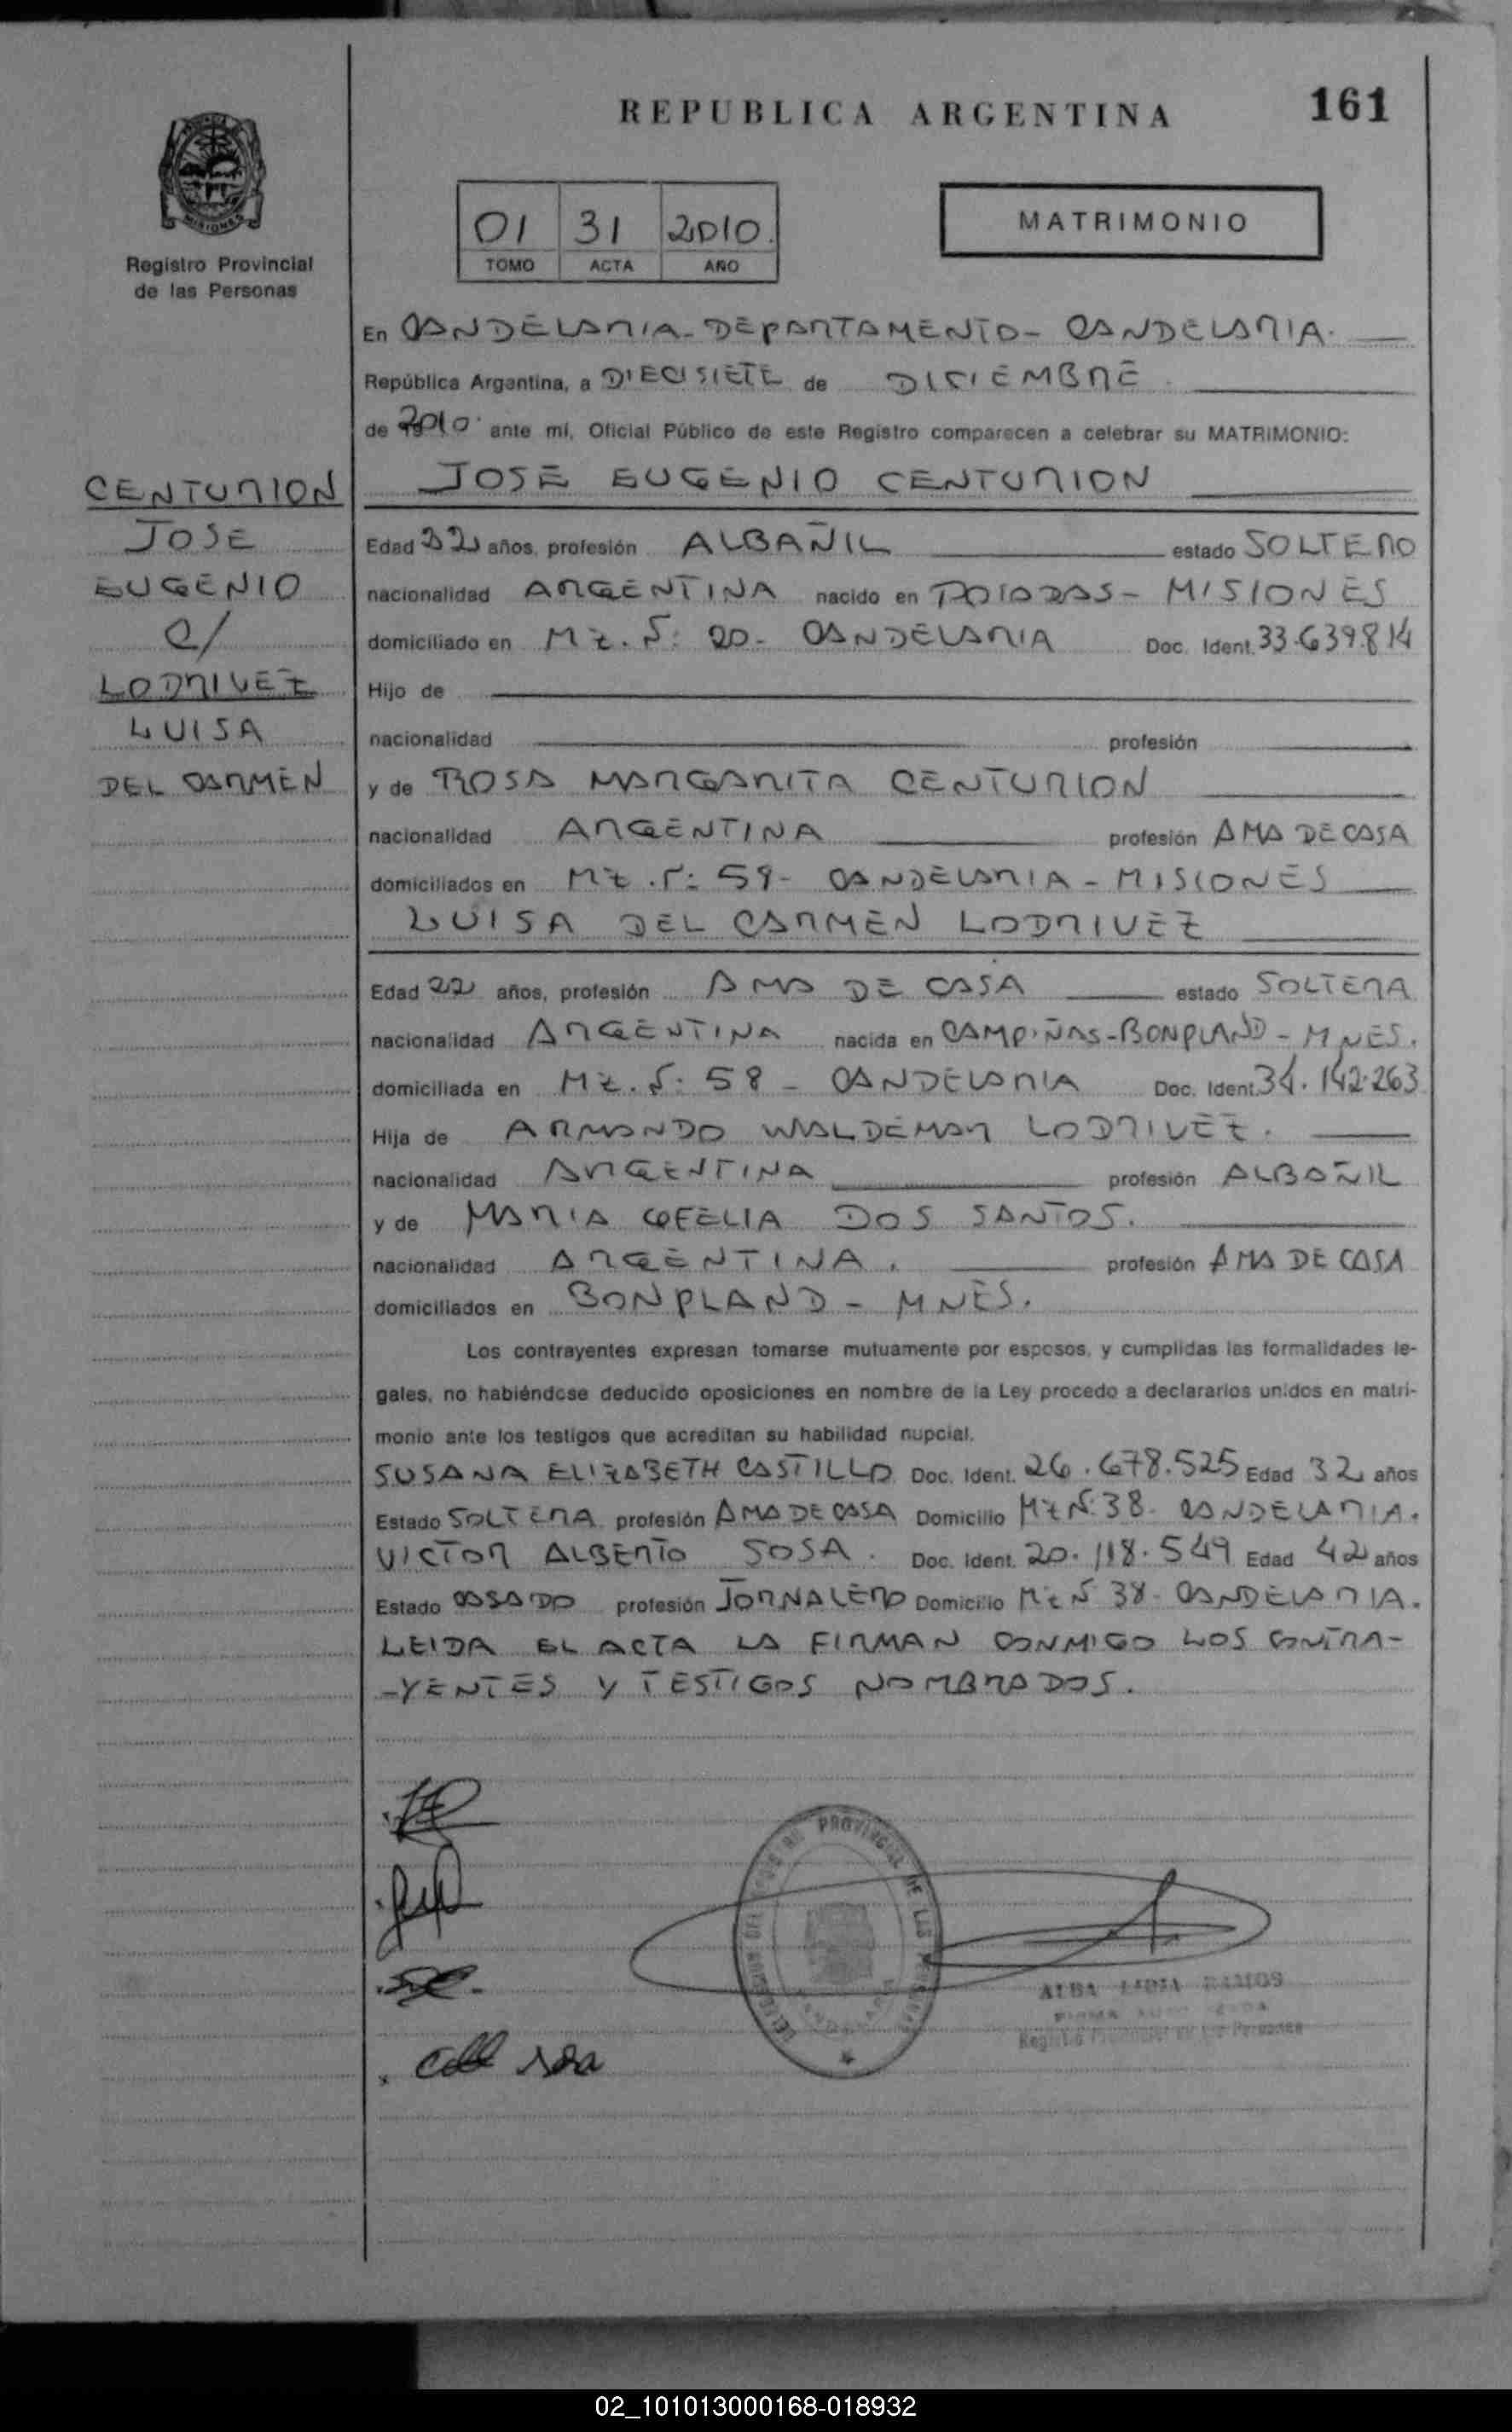 REPUBLICA ARGENTINA
161
MISIONES
Registro Provincial
de las Personas
01 31 2010.
TOMO ACTA AÑO
MATRIMONIO
En CANDELARIA - DEPARTAMENTO - CANDELARIA.
República Argentina, a DIECISIETE de DICIEMBRE
de 2010 ante mí, Oficial Público de este Registro comparecen a celebrar su MATRIMONIO:
JOSE EUGENIO CENTURION
CENTURION
JOSE
EUGENIO
C/
LODRIVEZ
LUISA
DEL CARMEN
Edad 22 años, profesión ALBAÑIL estado SOLTERO
nacionalidad ARGENTINA nacido en POSADAS - MISIONES
domiciliado en Mz. Nº: 20 - CANDELARIA Doc. Ident. 33.639.814
Hijo de
nacionalidad profesión
y de ROSA MARGARITA CENTURION
nacionalidad ARGENTINA profesión AMA DE CASA
domiciliados en Mz. Nº: 59 - CANDELARIA - MISIONES
LUISA DEL CARMEN LODRIVEZ
Edad 22 años, profesión AMA DE CASA estado SOLTERA
nacionalidad ARGENTINA nacida en CAMPIÑAS - BONPLAND - MNES.
domiciliada en Mz. Nº: 58 - CANDELARIA Doc. Ident. 34.142.263
Hija de ARMANDO WALDEMAR LODRIVEZ.
nacionalidad ARGENTINA profesión ALBAÑIL
y de MARIA OFELIA DOS SANTOS.
nacionalidad ARGENTINA. profesión AMA DE CASA
domiciliados en BONPLAND - MNES.
Los contrayentes expresan tomarse mutuamente por esposos, y cumplidas las formalidades le-
gales, no habiéndose deducido oposiciones en nombre de la Ley procedo a declararlos unidos en matri-
monio ante los testigos que acreditan su habilidad nupcial.
SUSANA ELIZABETH CASTILLO Doc. Ident. 26.678.525 Edad 32 años
Estado SOLTERA profesión AMA DE CASA Domicilio Mz Nº: 38 - CANDELARIA.
VICTOR ALBERTO SOSA. Doc. Ident. 20.118.549 Edad 42 años
Estado CASADO profesión JORNALERO Domicilio Mz Nº 38 - CANDELARIA.
LEIDA EL ACTA LA FIRMAN CONMIGO LOS CONTRA-
-YENTES Y TESTIGOS NOMBRADOS.
PROVINCIAL DE LAS
ALBA LIDIA RAMOS
Registro Provincial de las Personas
02_101013000168-018932